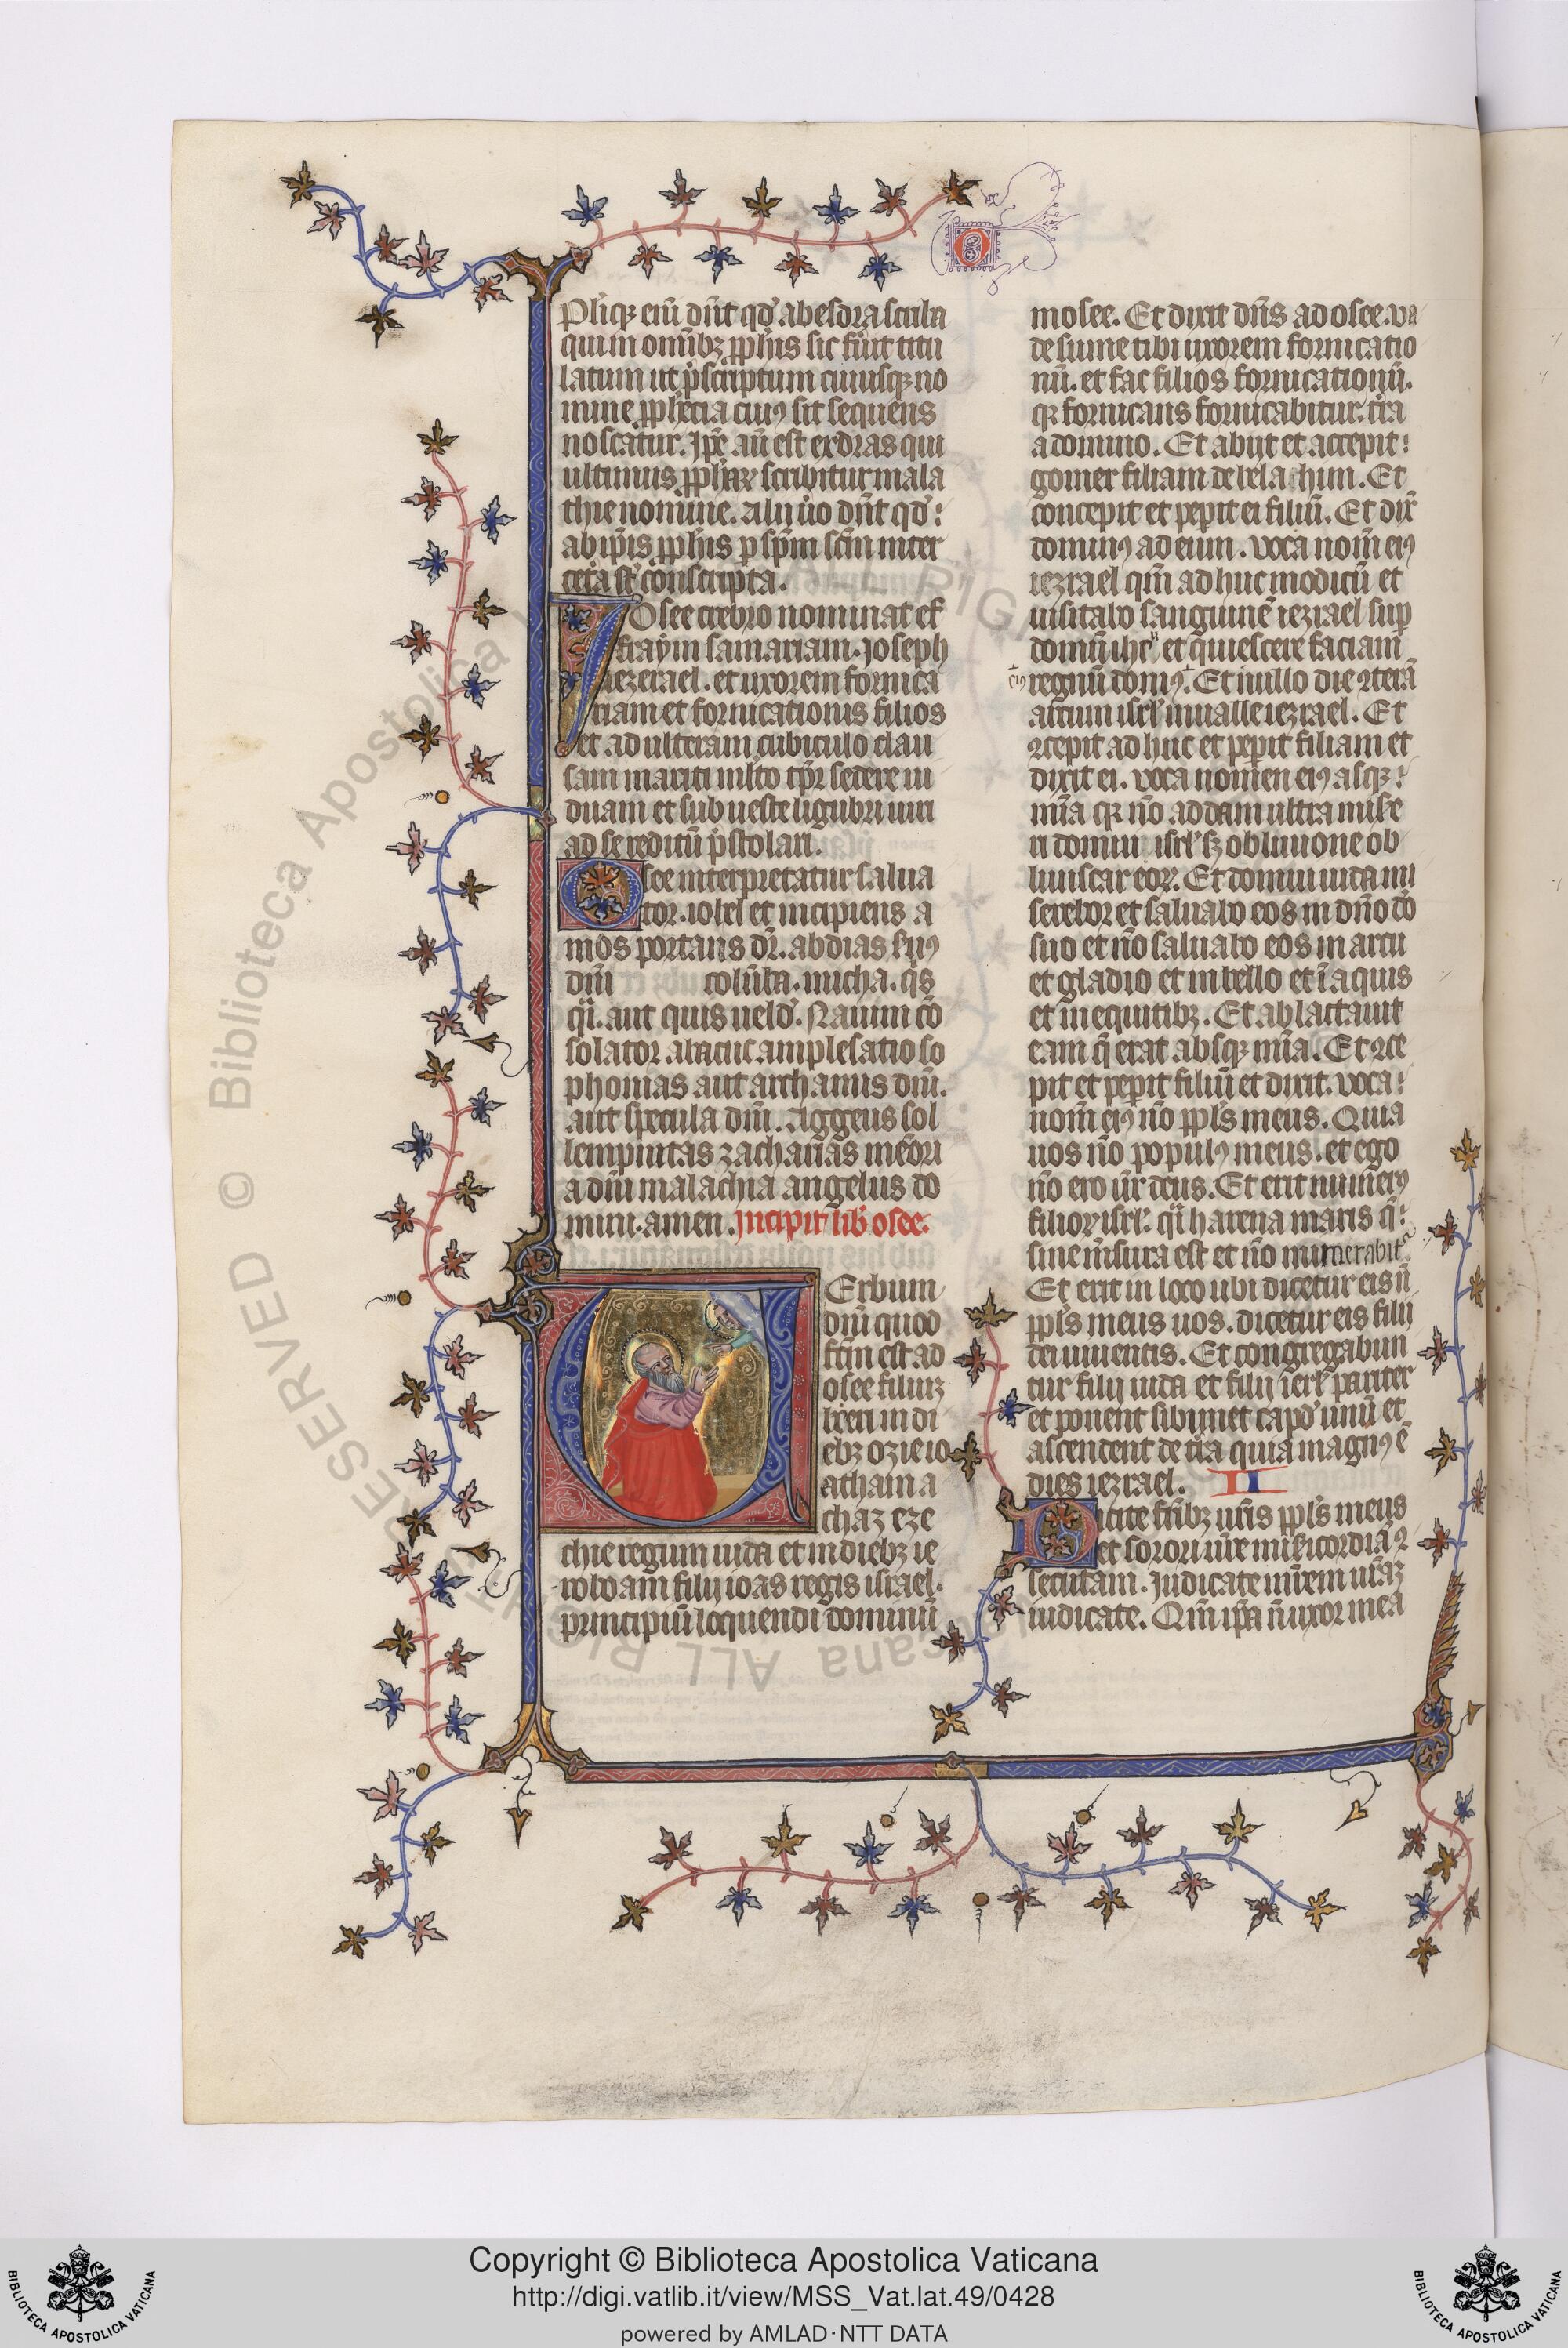 O
Pliq̃ eiũ dñt qd̕ ab esdra scⁱta
qui in omĩbꝫ ꝓphis sic fũit titu
latum ut p̃scriptum cuiusqꝫ no
mine ꝓphetia cuiꝰ sit sequens
noscatur. Ip̃e aũ est exdras qui
ultimus ꝓphãꝝ scribitur mala
chie nomine. Alij ũo dñt qd̕
ab ip̃is ꝓphis p sp̃m scm̃ inter
cet̃a st̃ conscripta.
Osee crebro nominat ef
fraym samariam. Joseph
iezerael. et uxorem fornica
riam et fornicationis filios
et adulteram cubiculo clau
sam mariti ml̃to tp̃r sedere ui
duam et sub ueste ligubri uiri
ad se reditũ p̃stolari.
Osee interpretatur salua
tor. iohel et incipiens a
mos portans dr̃. abdias sꝰuꝰ
dñi colũba. micha. q̃s
q̃i. aut quis uel d̕. Naum cõ
solator abacuc amplesatio so
phonias aut archanus dñi.
aut specula dñi. Aggeus sol
lempnitas zacharias mẽori
a dñi malachia angelus do
mini. amen. Incipit lib̕ osee.
Verbum
dñi quod
fctm̃ est ad
osee filiuꝫ
beeri in di
ebꝫ ozie io
atham a
chaz eze
chie regum iuda et in diebꝫ ie
roboam filij ioas regis israel.
principiũ loquendi dominũ
mosee. Et dixit dñs ad osee. va
de sume tibi uxorem fornicatio
nũ. et fac filios fornicationũ.
qꝛ fornicans fornicabitur. tr̃a
a domino. Et abijt et accepit
gomer filiam debela *h*im. Et
concepit et pepit ei filiũ. Et dix̃
dominꝰ ad eum. voca nom̃ eiꝰ
iezrael qm̃ ad huc modicũ et
uisitabo sanguinẽ iezrael sup
domũ ihe᷑ et quiescere faciam
eiꝰ
regnũ domꝰ. Et in illo die ꝯterã
arcum isrl̕ in ualle iezrael. Et
ꝯcepit ad huc et pepit filiam et
dixit ei. voca nomen eiꝰ asqꝫ
mĩa qꝛ nõ addam ultra mise
ri domui isrl̕ sꝫ obliuione ob
liuiscar eoꝝ. Et domui iuda mi
serebor et saluabo eos in dño dõ
suo et nõ saluabo eos in arcu
et gladio et in bello et ĩ aquis
et in equitibꝫ. Et ablactauit
eam q̃ erat absqꝫ mĩa. Et ꝯce
pit et pepit filiũ et dixit. voca
nom̃ eiꝰ nõ ppl̕s meus. Quia
uos nõ populꝰ meus. et ego
nõ ero ũr deus. Et erit num̃eꝰ
filioꝝ isrl̕ q̃i harena maris q̃
sine m̃sura est et nõ numerabit᷑
Et erit in loco ubi dicetur eis ñ
ppl̕s meus uos. dicetur eis filij
dei uiuentis. Et congregabun
tur filij iuda et filij isrl̕ pariter
et ponent sibimet capd̕ unũ et
ascendent de tr̃a quia magnꝰ ẽ
dies iezrael. II
Dicite frĩbꝫ ur̃is ppl̕s meus
et sorori ur̃e misericordiã ꝯ
secutam. Judicate mr̃em ur̃aꝫ
iudicate. Qm̃ ip̃a ñ uxor mea
Copyright © Biblioteca Apostolica Vaticana
http://digi.vatlib.it/view/MSS_Vat.lat.49/0428
powered by AMLAD·NTT DATA
BIBLIOTECA APOSTOLICA VATICANA
BIBLIOTECA APOSTOLICA VATICANA